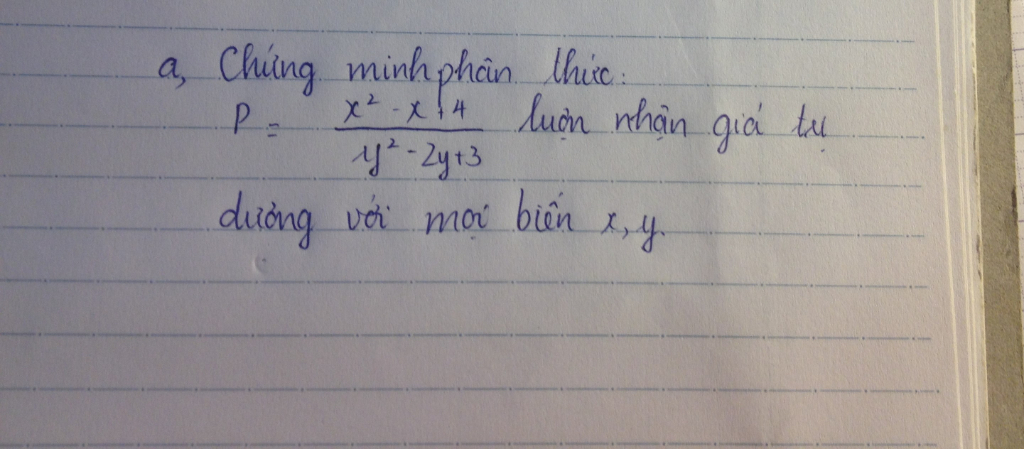 a, Chứng minh phân thức:
P = x² - x + 4 / y² - 2y + 3 luôn nhận giá tụ
dương với mọi biến x, y.